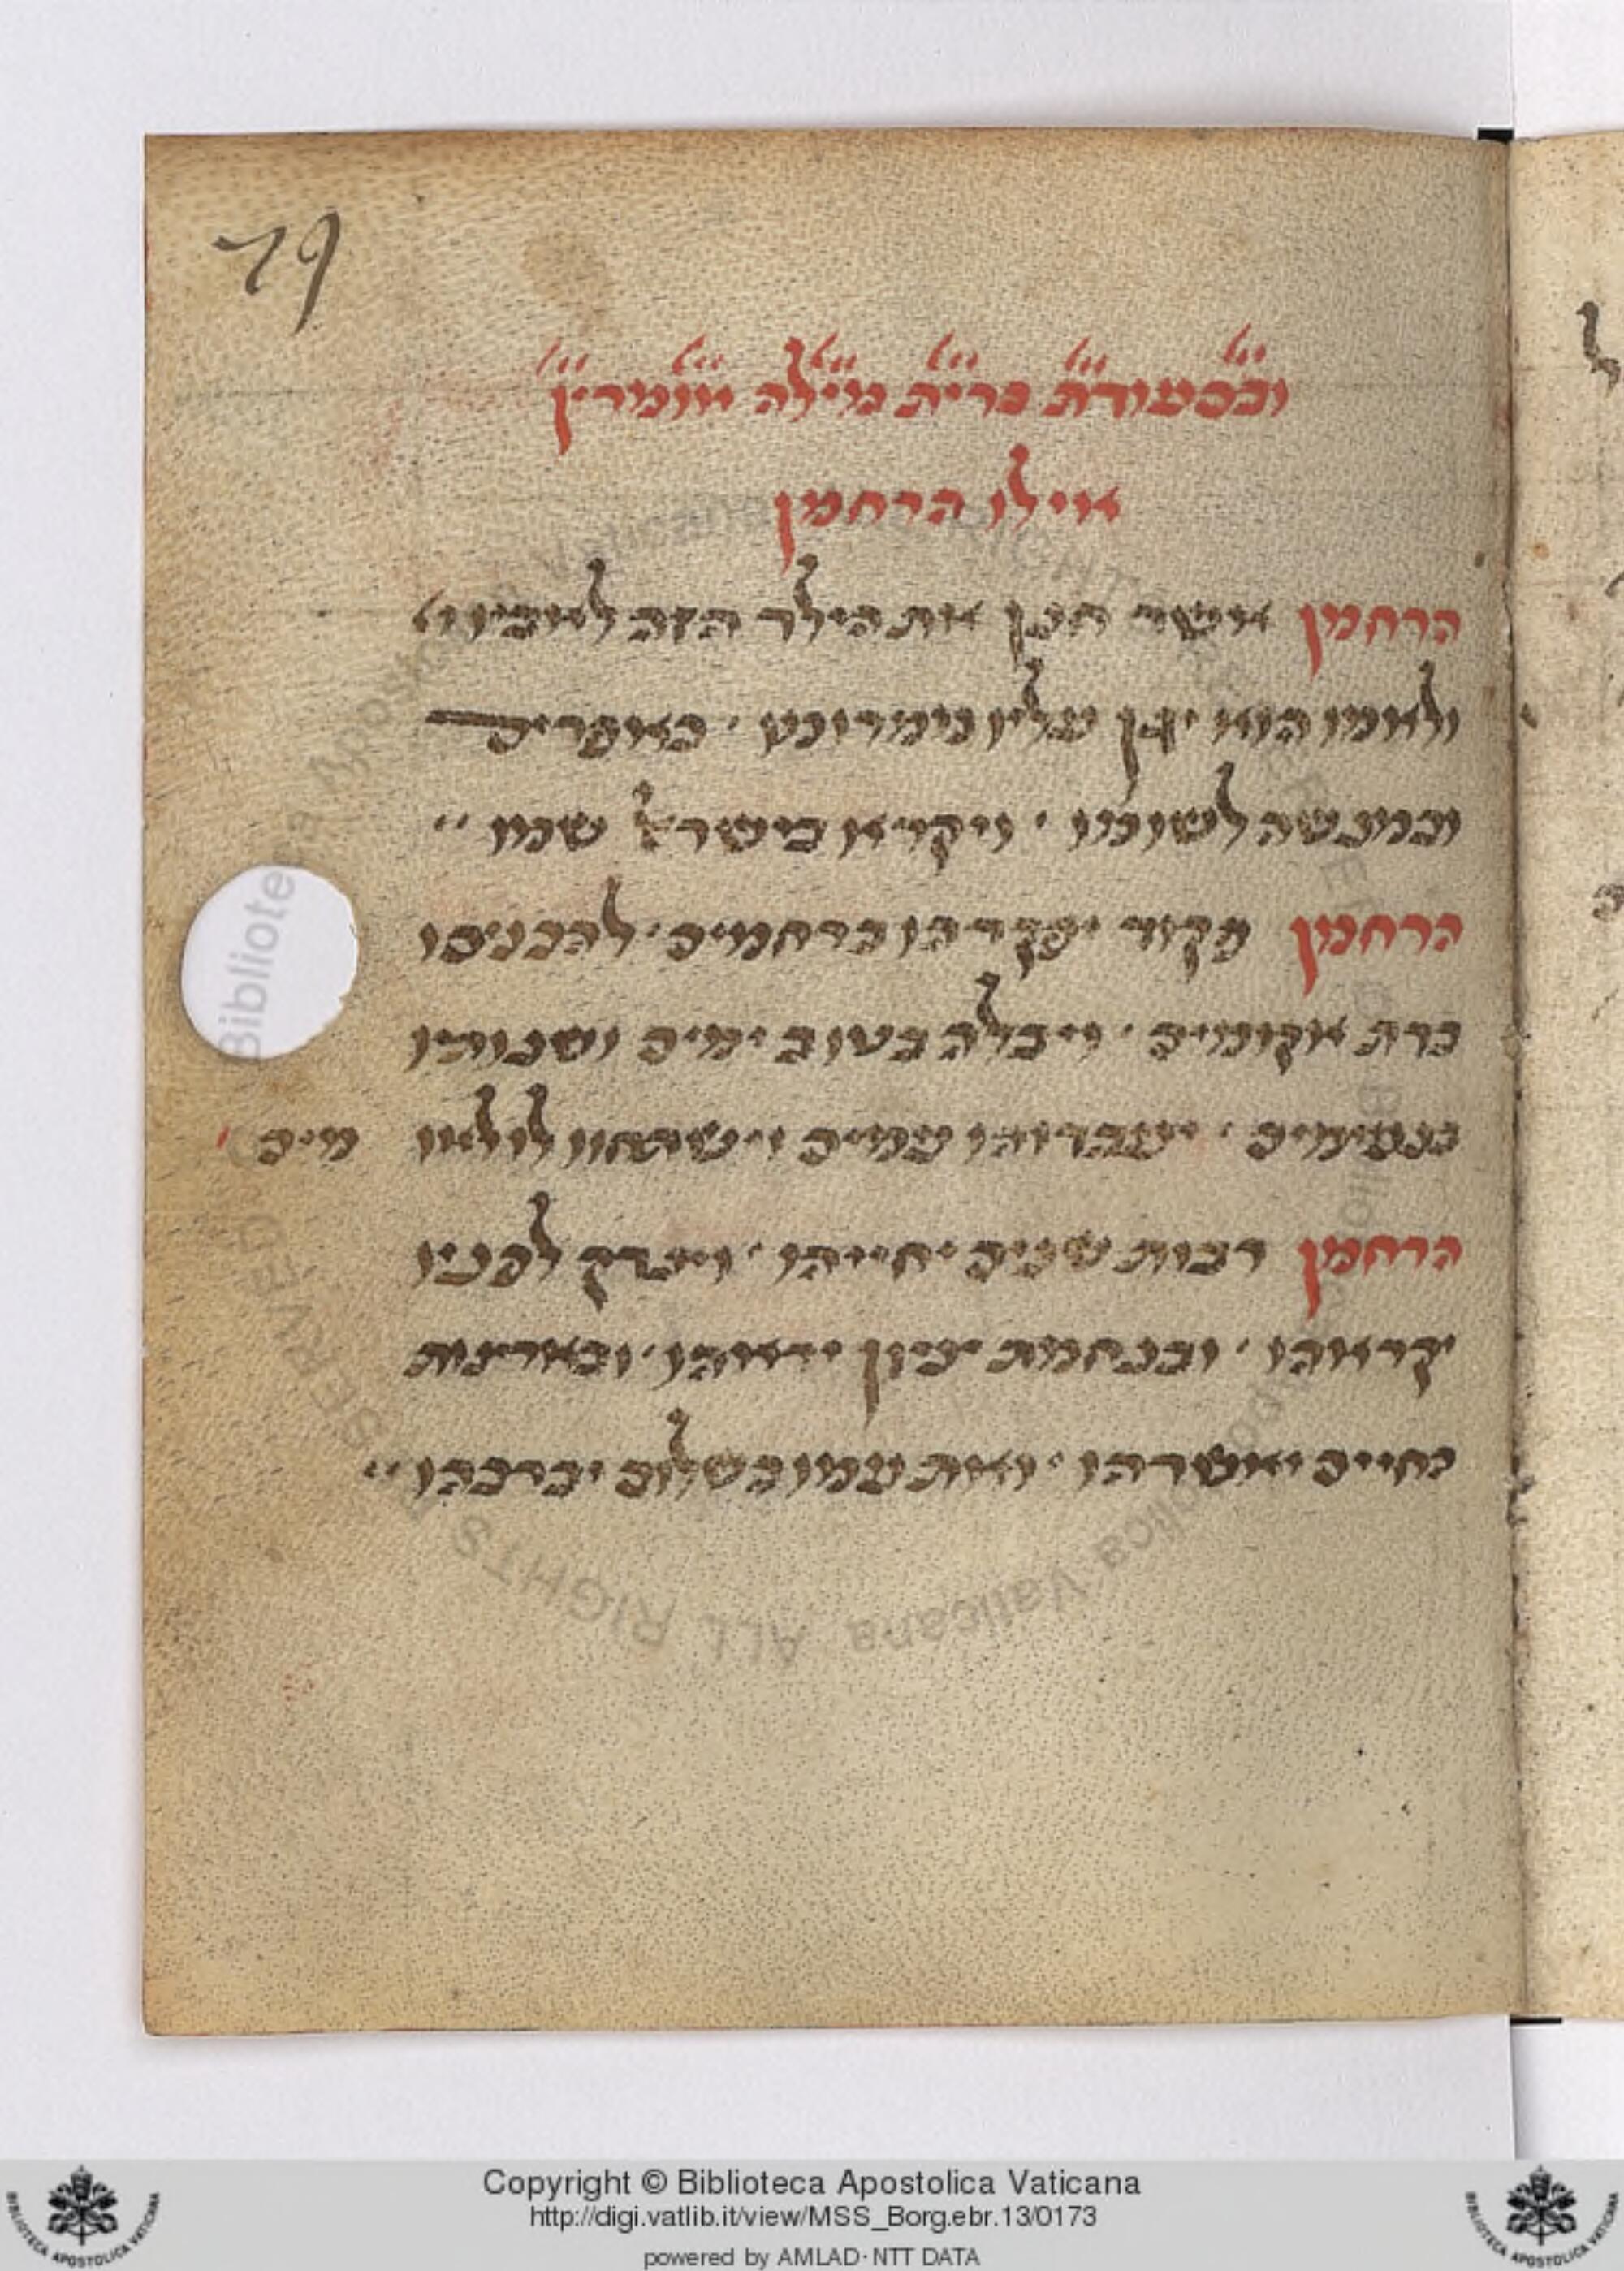 79
ובסעודת ברית מילה אומרין
אילו הרחמן
הרחמן אשר חנן את הילד הזה לאביו
ולאמו הוא יחן עליו ממרומיו כאפרים
וכמנשה לשומו ויקרא בישראל שמו
הרחמן פקוד יפקדהו ברחמים להכניסו
בדת אקומים ויבלה בטוב ימים ושנותיו
בנעימים יעבדוהו עמים וישתחוו לו לאומים
הרחמן רבות שנים יחייהו וצדק לפניו
יקראהו ובנחמת ציון יראוהו ובארצות
החיים יאשרהו ואת עמו בשלום יברכהו
Copyright © Biblioteca Apostolica Vaticana
http://digi.vatlib.it/view/MSS_Borg.ebr.13/0173
powered by AMLAD·NTT DATA